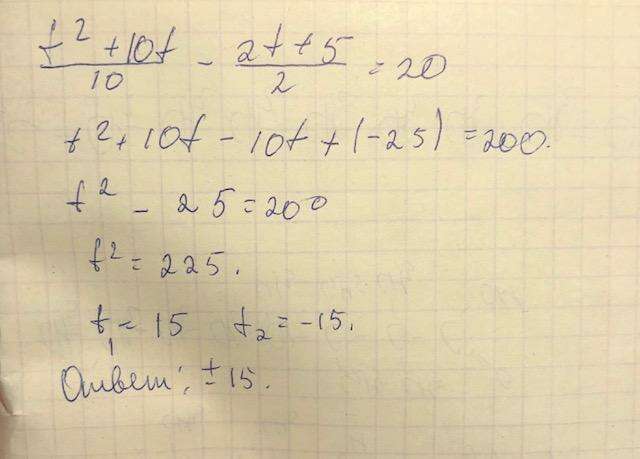 (t² + 10t)/10 - (2t + 5)/2 = 20
t² + 10t - 10t + (-25) = 200.
t² - 25 = 200
t² = 225.
t₁ = 15 t₂ = -15.
Ответ: ± 15.